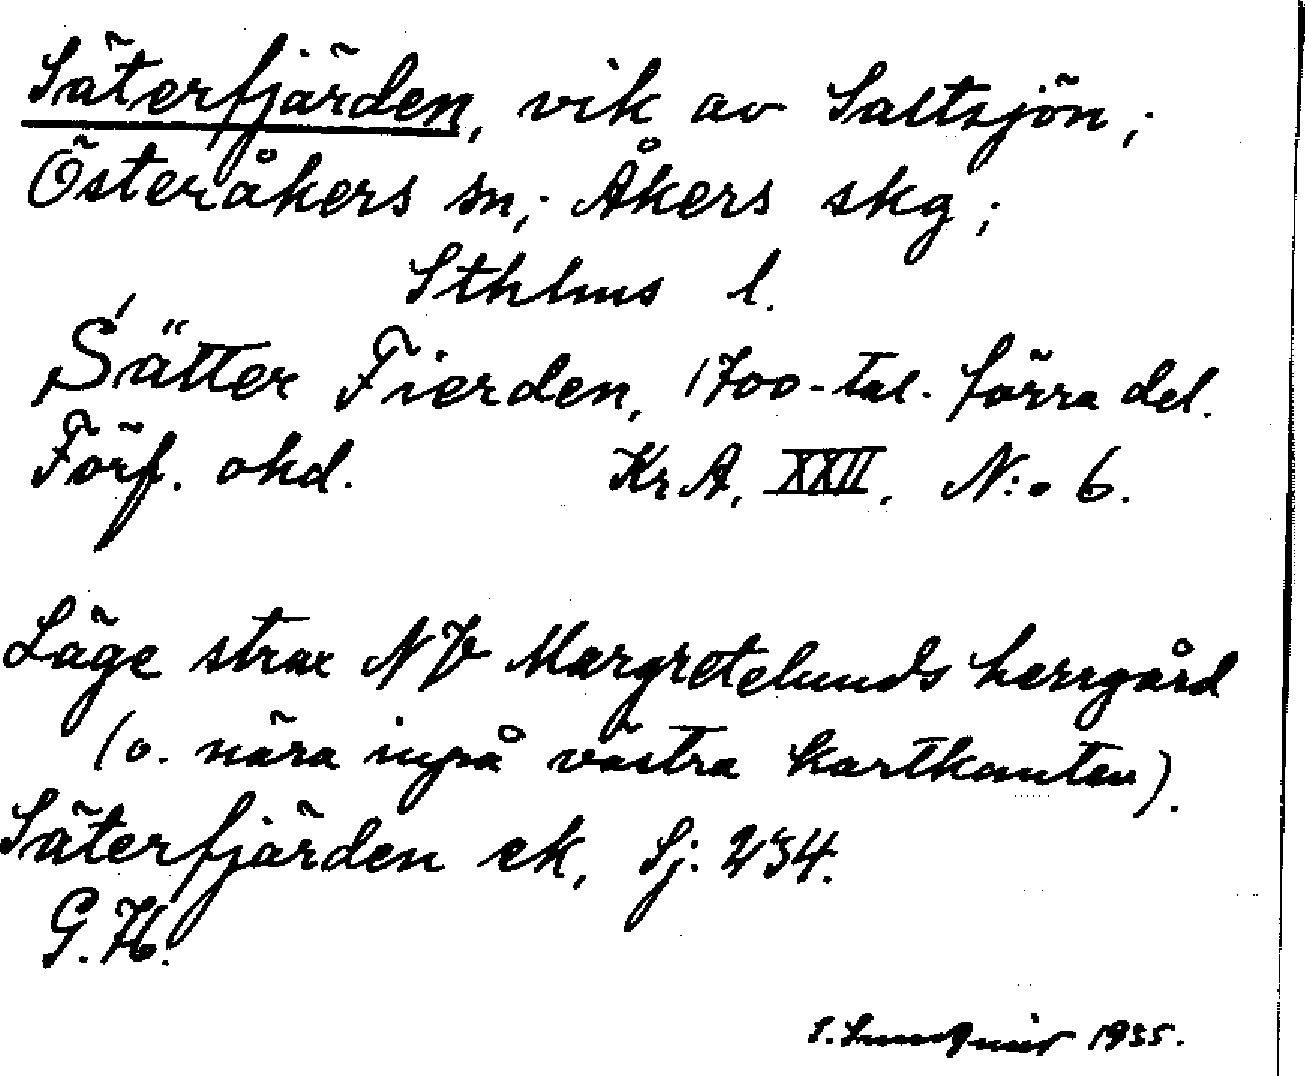 Säterfjärden, vik av Saltsjön;
Österåkers sn; Åkers skg;
Sthlms l.
"Sätter Fierden, 1700-tal. förra del.
Förf. okd. Kr A, XXII, N:o 6.
Läge strax NV Margretelunds herrgård
(o. nära inpå västra kartkanten).
Säterfjärden ek, Sj. 234.
G.H.
1935.